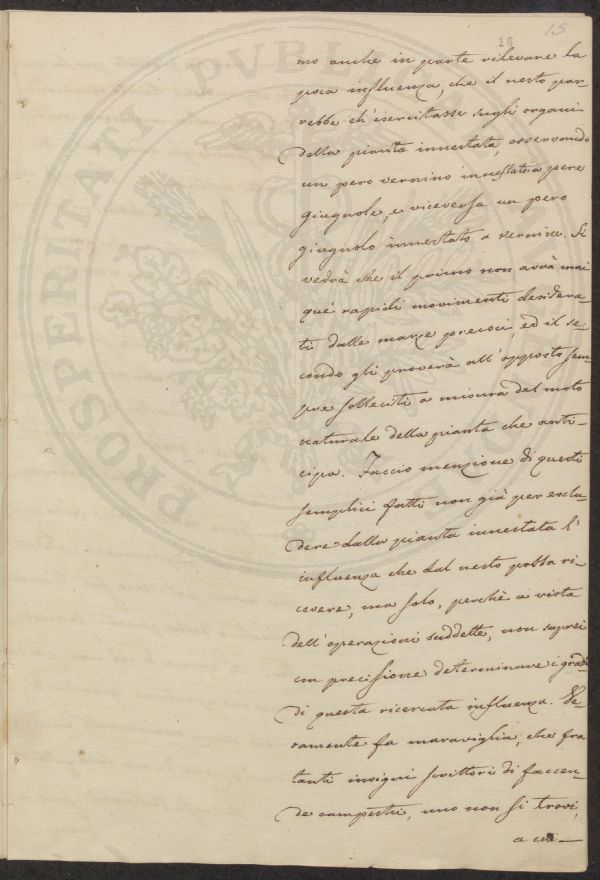 15
16
mo anche in parte rilevare la
poca influenza, che il nesto par-
rebbe ch'esercitasse sugli organi
della pianta innestata, osservando
un pero vernino innestato a pere
giugnole, e viceversa un pero
giugnolo innestato a vernine. Si
vedrà che il primo non avrà mai
que' rapidi movimenti desidera-
ti dalle marze precoci, ed il se-
condo gli proverà all'opposto sem-
pre solleciti a misura del moto
naturale della pianta che anti-
cipa. Faccio menzione di questi
semplici fatti non già per esclu-
dere dalla pianta innestata l'
influenza che dal nesto possa ri-
cevere, ma solo, perchè a vista
dell'operazioni suddette, non saprei
con precisione determinare i gradi
di questa ricercata influenza. Ve-
ramente fa maraviglia, che fra
tanti insigni scrittori di faccen-
de campestri, uno non si trovi,
a cui
PROSPERITATI PVBLIC